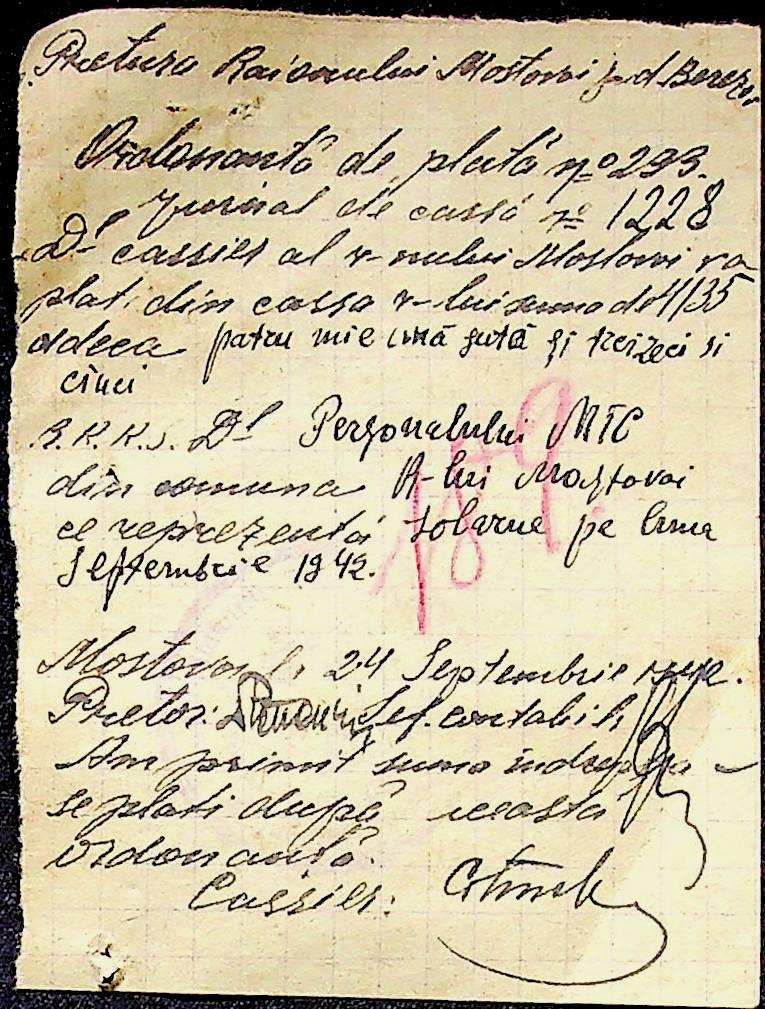 Pretura Raionului Mostovoi jud Berezo
Ordonanță de plată No 293.
Jurnal de cassă No 1228
Dl cassier al r-nului Mostovoi va
plati din cassa r-lui suma de 4135
adeca patru mie una sută și treizeci si
cinci
R.K.K.S. Dl Personalului MTC
din comuna R-lui Mostovoi
ce reprezentá solarne pe luna
Septembrie 1942.
189.
Mostovoi, 24 Septembrie 1942.
Pretor: Șef. contabil:
Am primit suma
se plati după aceasta
ordonanță.
Cassier: